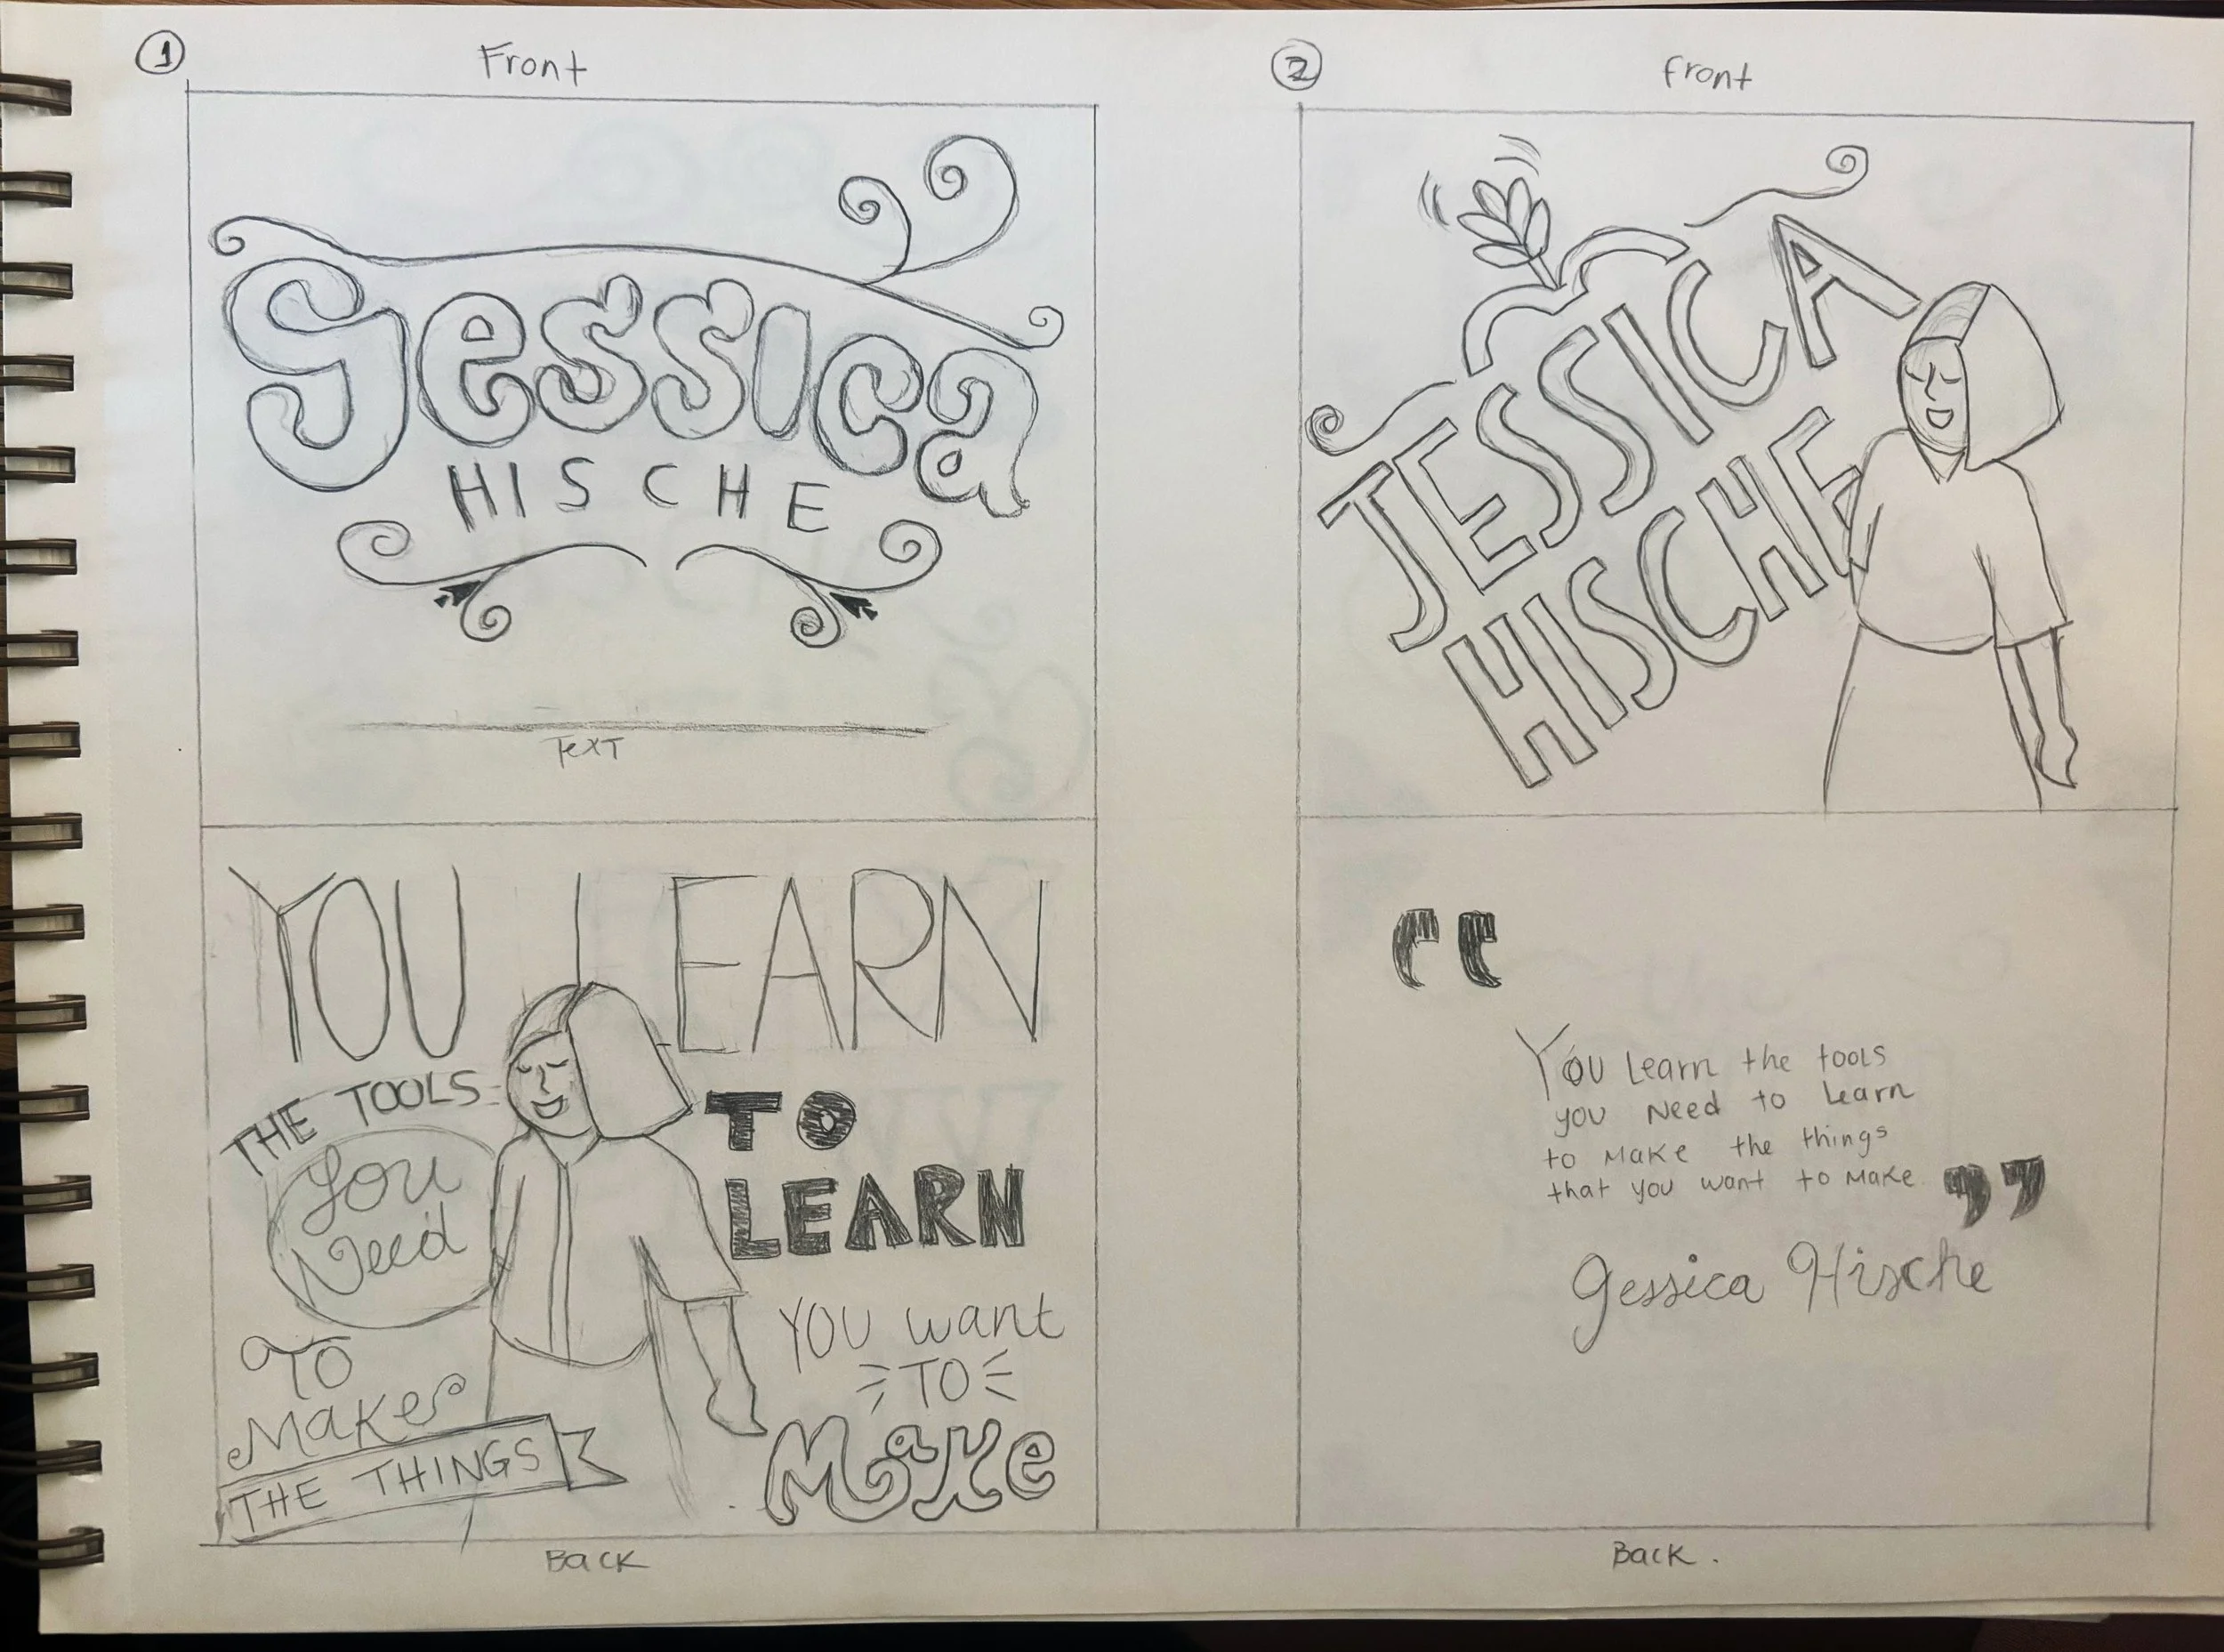 1
Front
gessica
HISCHE
TEXT
YOU LEARN
THE TOOLS
You
Need
TO
MaKe
THE THINGS
TO
LEARN
YOU want
TO
MaKe
Back
2
front
JESSICA
HISCHE
“
You Learn the tools
you Need to Learn
to Make the things
that you want to Make
”
gessica Hische
Back.